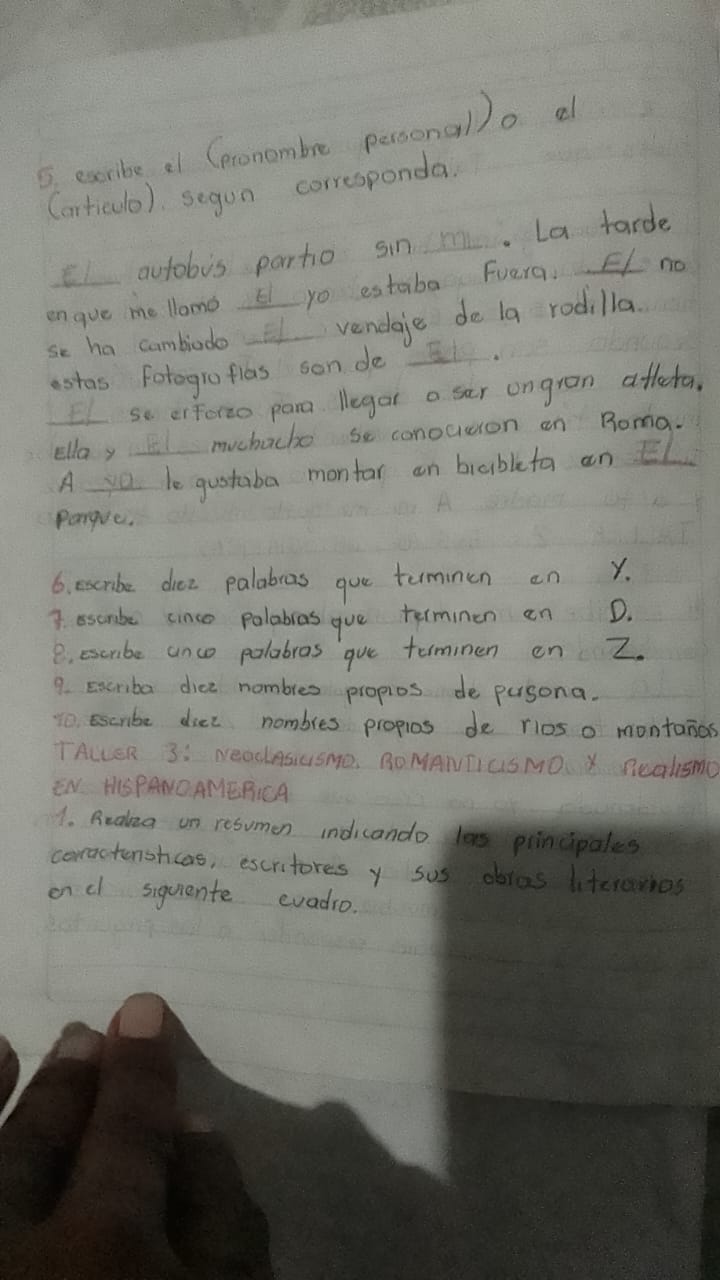 5. escribe el (pronombre personal) o el
(articulo). segun corresponda.
El autobús partio sin mi. La tarde
en que me llamó El yo estaba Fuera. El no
se ha cambiado El vendaje de la rodilla.
estas Fotografias son de El.
El se erforzo para llegar a ser un gran atleta.
Ella y El muchacho se conocieron en Roma.
A yo le gustaba montar en bicibleta en EL
Parque.
6. Escribe diez palabras que terminen en Y.
7. escribe cinco Palabras que terminen en D.
8. Escribe cinco palabras que terminen en Z.
9. Escriba diez nombres propios de persona.
10. Escribe diez nombres propios de rios o montañas
TALLER 3: Neoclasicismo, ROMANTICISMO Y Realismo
EN HISPANOAMERICA
1. Realiza un resumen indicando las principales
caracteristicas, escritores y sus obras literarias
en el siguiente cuadro.